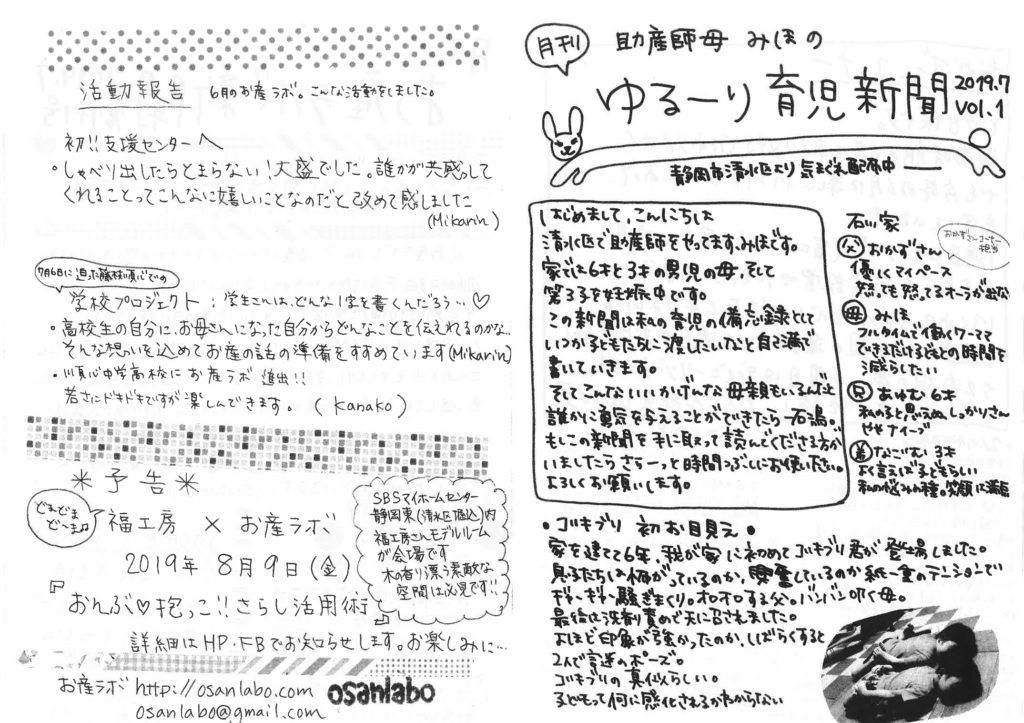 活動報告 6月のお産ラボ。こんな活動をしました。
初!!支援センターへ
・しゃべり出したらとまらない!大盛でした。誰かが共感して
くれることってこんなに嬉しいことなのだと改めて感じました
(Mikarin)
7月6日に迫った藤枝順心での
学校プロジェクト:学生さんは、どんな1字を書くんだろう…♡
・高校生の自分に、お母さんになった自分からどんなことを伝えれるのかな…
そんな想いを込めてお産の話の準備をすすめています(Mikarin)
・順心中学高校にお産ラボ進出!!
若さにドキドキですが楽しんできます。(Kanako)
*予告*
福工房 × お産ラボ
2019年 8月9日(金)
『おんぶ♡抱っこ!!さらし活用術』
詳細はHP・FBでお知らせします。お楽しみに…
SBSマイホームセンター
静岡東(清水区堀込)内
福工房さんモデルルーム
が会場です
木の香り漂う素敵な
空間は必見です!!
お産ラボ http://osanlabo.com
osanlabo@gmail.com
osanlabo
月刊
助産師母 みほの
ゆるーり育児新聞
2019.7
vol.1
静岡市清水区より気まぐれ配布中
はじめまして、こんにちは
清水区で助産師をやってます、みほです。
家では6才と3才の男児の母、そして
第3子を妊娠中です。
この新聞は私の育児の備忘録として
いつか子どもたちに渡したいなと自己満で
書いていきます。
そしてこんないいかげんな母親もいるんだと
誰かに勇気を与えることができたら一石二鳥。
もしこの新聞を手に取って読んでくださる方が
いましたらさらーっと時間つぶしにお使い下さい。
よろしくお願いします。
石い家
父 おかずさん
おかずさんコーナー
担当
優しくマイペース
怒っても怒ってるオーラが出ない
母 みほ
フルタイムで働くワーママ
できるだけ子どもとの時間を
減らしたい
兄 あゆむ 6才
私の子と思えぬしっかりさん
ややナイーブ
弟 なごむ 3才
よく言えば子どもらしい
私の悩みの種。笑顔に満点
・ゴキブリ 初お目見え・
家を建てて6年、我が家に初めてゴキブリ君が登場しました。
息子たちは怖がっているのか、興奮しているのか紙一重のテンションで
ギャーギャー騒ぎまくり。オロオロする父。バンバン叩く母。
最後は洗剤責めで天に召されました。
よほど印象が強かったのか、しばらくすると
2人で謎のポーズ。
ゴキブリの真似らしい。
子どもって何に感化されるかわからない